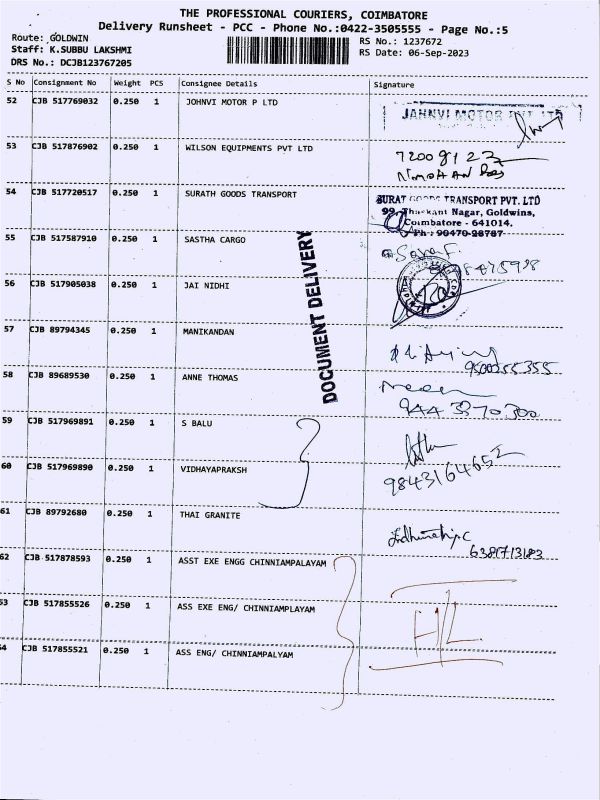 THE PROFESSIONAL COURIERS, COIMBATORE
Delivery Runsheet - PCC - Phone No.:0422-3505555 - Page No.:5
Route: GOLDWIN
Staff: K.SUBBU LAKSHMI
DRS No.: DCJB123767205
RS No.: 1237672
RS Date: 06-Sep-2023
S No Consignment No Weight PCS Consignee Details Signature
52 CJB 517769032 0.250 1 JOHNVI MOTOR P LTD
JAHNVI MOTOR PVT LTD
53 CJB 517876902 0.250 1 WILSON EQUIPMENTS PVT LTD
54 CJB 517720517 0.250 1 SURATH GOODS TRANSPORT
SURAT GOODS TRANSPORT PVT. LTD
99, Thackant Nagar, Goldwins,
Coimbatore - 641014.
Ph : 90470-28787
55 CJB 517587910 0.250 1 SASTHA CARGO
56 CJB 517905038 0.250 1 JAI NIDHI
DOCUMENT DELIVERY
57 CJB 89794345 0.250 1 MANIKANDAN
9500255355
58 CJB 89689530 0.250 1 ANNE THOMAS
944 3370 300
59 CJB 517969891 0.250 1 S BALU
60 CJB 517969890 0.250 1 VIDHAYAPRAKSH
9843164652
61 CJB 89792680 0.250 1 THAI GRANITE
62 CJB 517878593 0.250 1 ASST EXE ENGG CHINNIAMPALAYAM
53 CJB 517855526 0.250 1 ASS EXE ENG/ CHINNIAMPLAYAM
H/L
54 CJB 517855521 0.250 1 ASS ENG/ CHINNIAMPALYAM